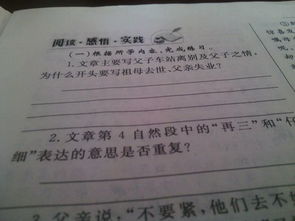 阅读·感悟·实践
(一)根据所学内容,完成练习。
1.文章主要写父子车站离别及父子之情,
为什么开头要写祖母去世、父亲失业?
2.文章第4自然段中的“再三”和“仔
细”表达的意思是否重复?
3.父亲说,“不要紧,他们去不